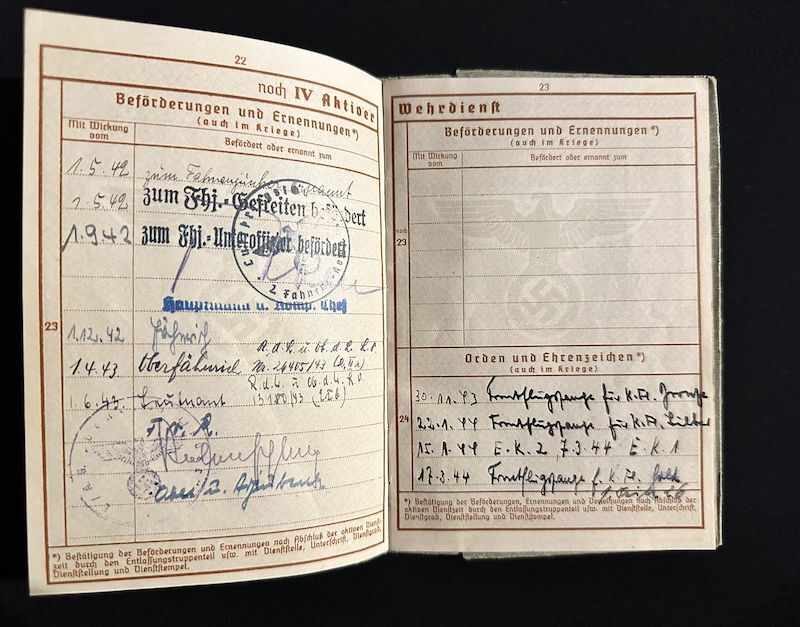 22
noch IV Aktiver
Beförderungen und Ernennungen*)
(auch im Kriege)
Mit Wirkung vom
Befördert oder ernannt zum
1.5.42 zum Fahnenjunker ernannt
1.5.42 zum Fhj.-Gefreiten befördert
1.9.42 zum Fhj.-Unteroffizier befördert
2. Fahnenj
Hauptmann u. Komp. Chef
23
1.12.42 Fähnrich
1.4.43 Oberfähnrich R.d.L. u. Ob.d.L.
Nr. 26405/43
1.6.43 Leutnant R.d.L. u. Ob.d.L.
15180/43
*) Bestätigung der Beförderungen und Ernennungen nach Abschluß der aktiven Dienst-
zeit durch den Entlassungstruppenteil usw. mit Dienststelle, Unterschrift, Dienstgrad,
Dienststellung und Dienststempel.
23
Wehrdienst
Beförderungen und Ernennungen*)
(auch im Kriege)
Mit Wirkung vom
Befördert oder ernannt zum
noch
23
Orden und Ehrenzeichen*)
(auch im Kriege)
30.11.43 Frontflugspange für K.Fl. Bronze
22.1.44 Frontflugspange für K.Fl. Silber
24
15.1.44 E.K.2, 7.3.44 E.K.1
17.3.44 Frontflugspange f. K.Fl. Gold
*) Bestätigung der Beförderungen, Ernennungen und Verleihungen nach Abschluß der
aktiven Dienstzeit durch den Entlassungstruppenteil usw. mit Dienststelle, Unterschrift,
Dienstgrad, Dienststellung und Dienststempel.